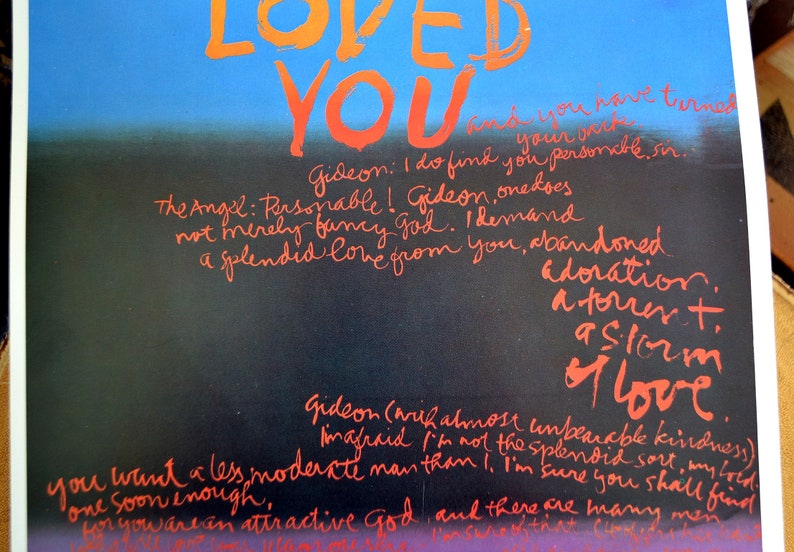 LOVED
YOU and you have turned
your back
Gideon: I do find you personable, sir.
The Angel: Personable! Gideon, one does
not merely fancy God. I demand
a splendid love from you, abandoned
adoration,
a torrent,
a storm
of love.
Gideon (with almost unbearable kindness)
I'm afraid I'm not the splendid sort, my Lord.
you want a less moderate man than I. I'm sure you shall find
one soon enough,
for you are an attractive God, and there are many men
I'm sure of that.